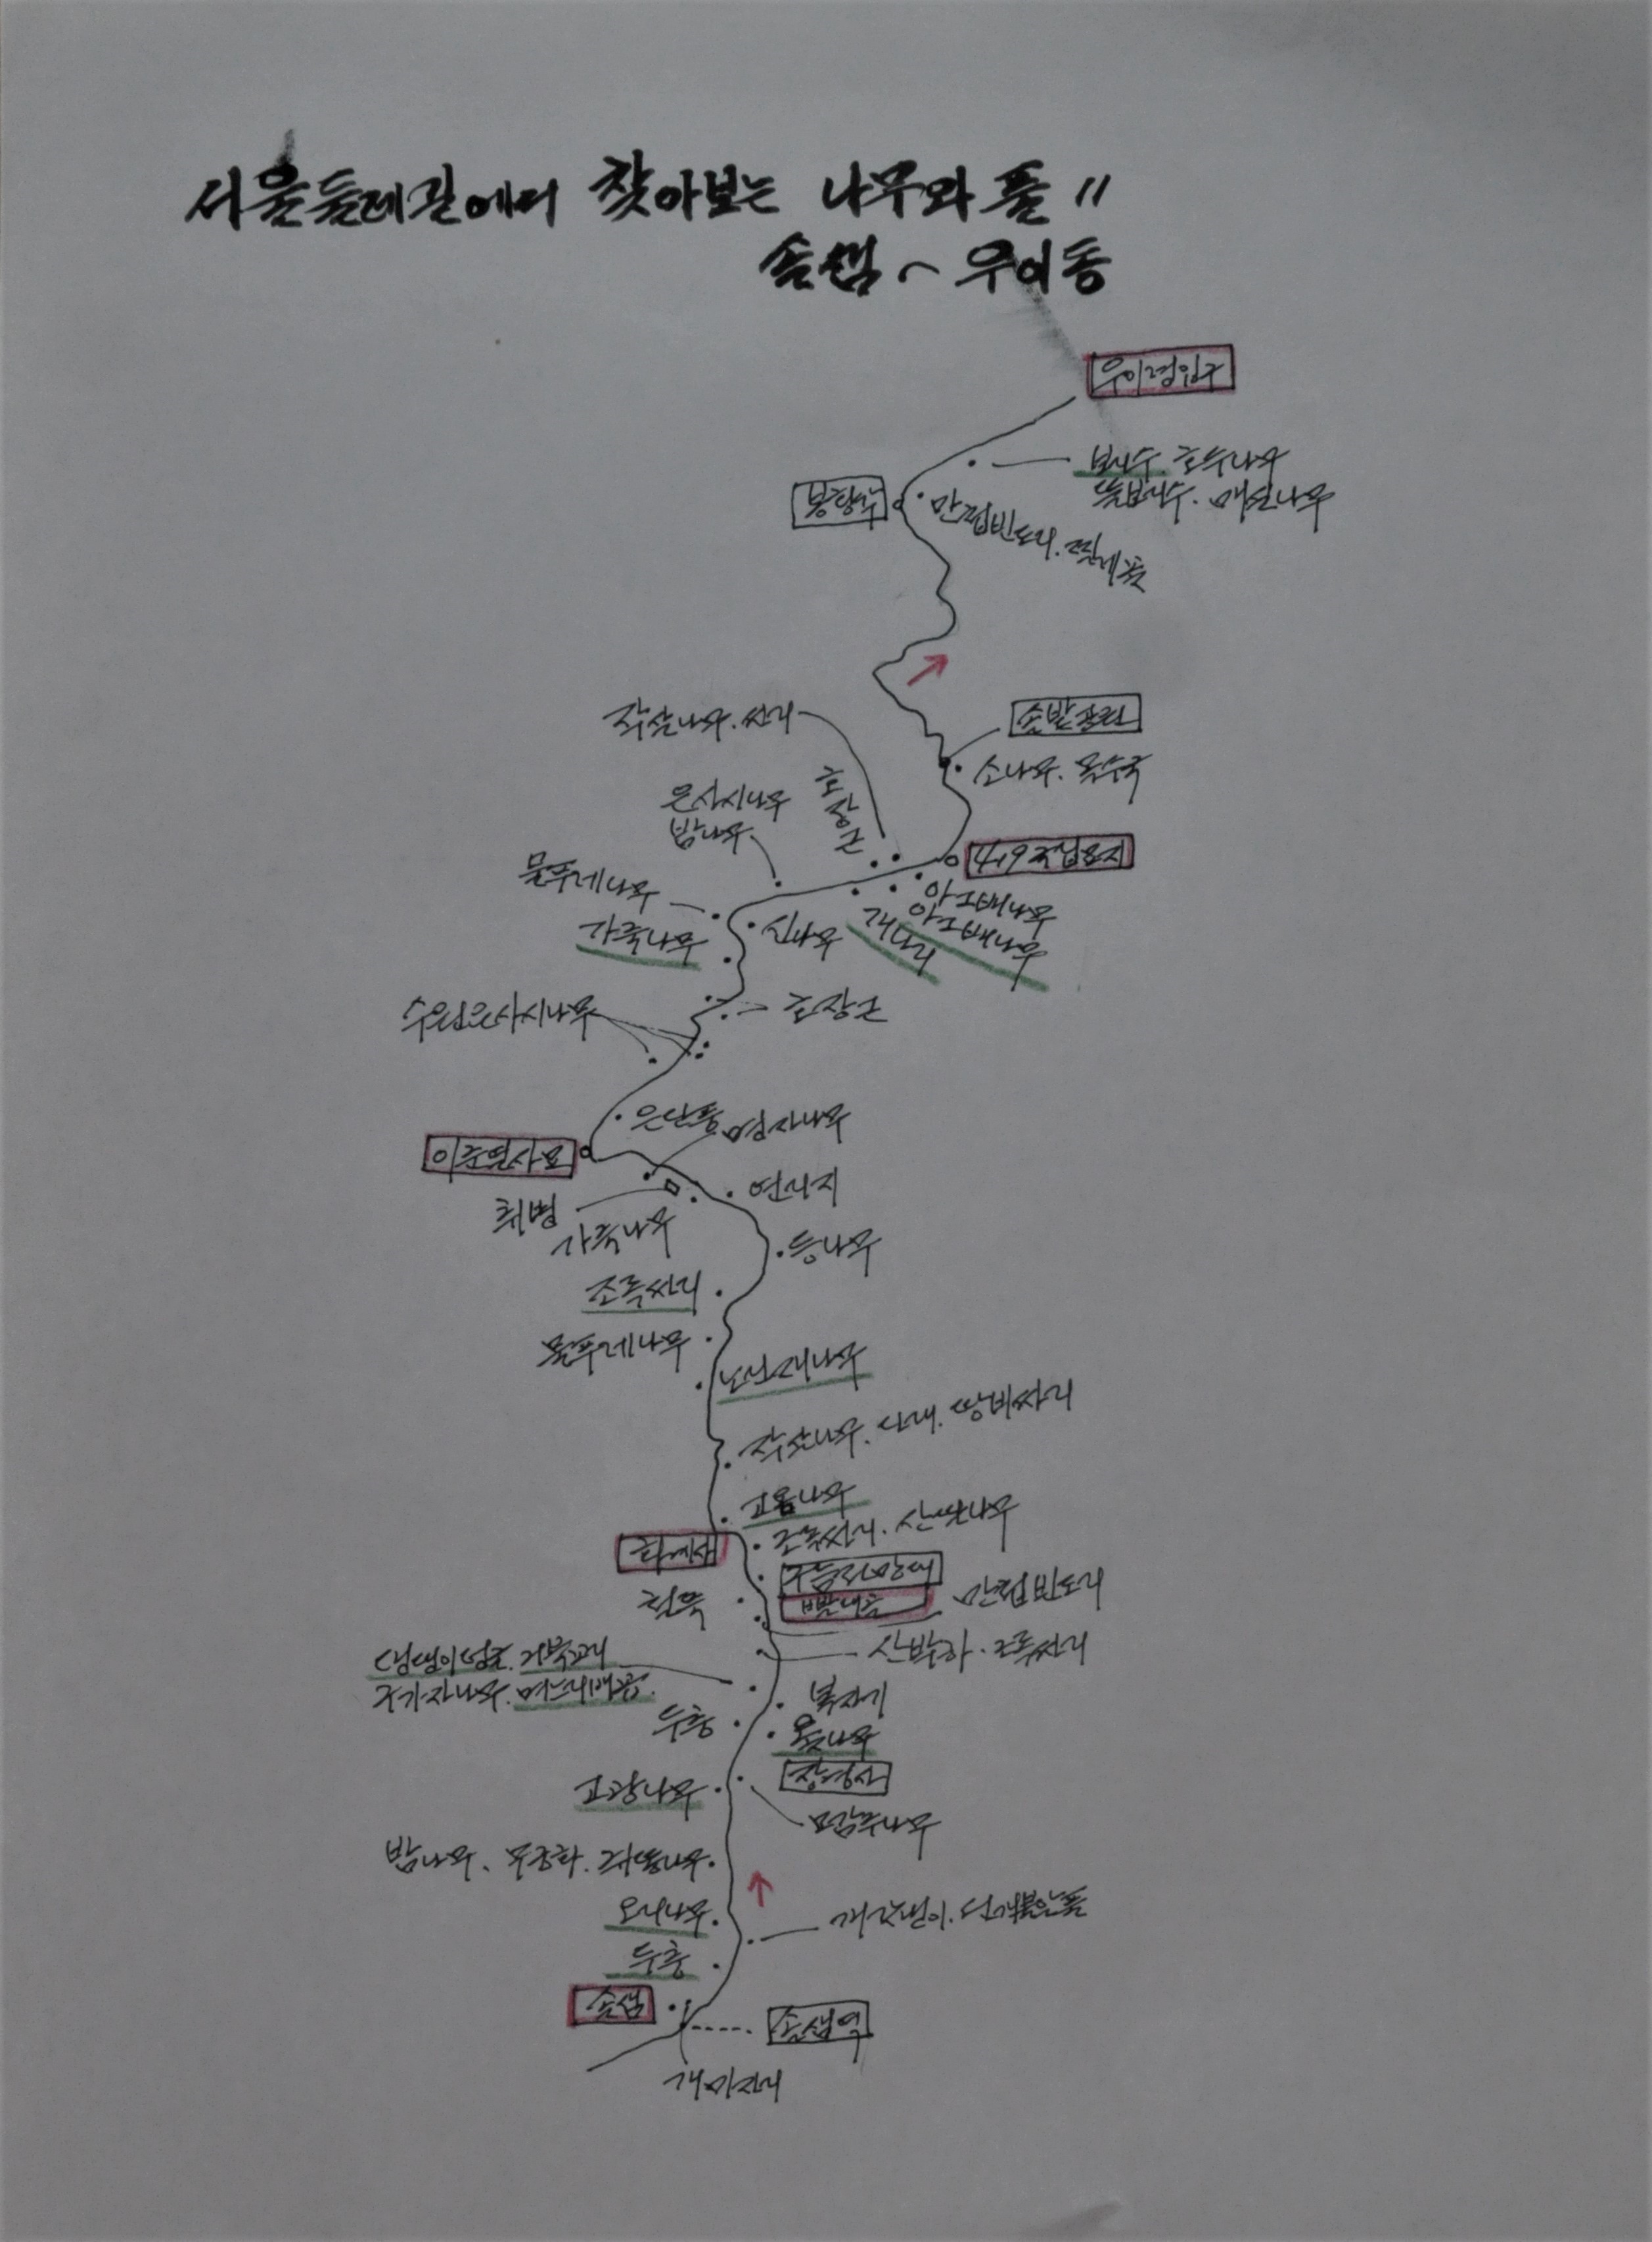 서울둘레길에서 찾아보는 나무와 풀 11
솔샘~우이동
우이령입구
보리수. 호두나무
뜰보리수. 매실나무
봉황각
만첩빈도리.
작살나무. 싸리
솔밭공원
소나무. 목수국
은사시나무
밤나무
호장근
4.19국립묘지
물푸레나무
가죽나무
신나무
개나리
아그배나무
아그배나무
수원은사시나무
호장근
은단풍
명자나무
이준열사묘
취병
가죽나무
연리지
등나무
조록싸리
물푸레나무
노린재나무
작살나무. 다래. 땅비싸리
고욤나무
조록싸리. 산딸나무
화계사
구름전망대
철쭉
빨래골
만첩빈도리
산박하. 조록싸리
댕댕이덩굴. 거북꼬리
구기자나무. 며느리배꼽.
복자기
두충
옻나무
고광나무
모감주나무
밤나무. 무궁화. 쥐똥나무.
오리나무
개갓냉이.
두충
솔샘
솔샘역
개미자리